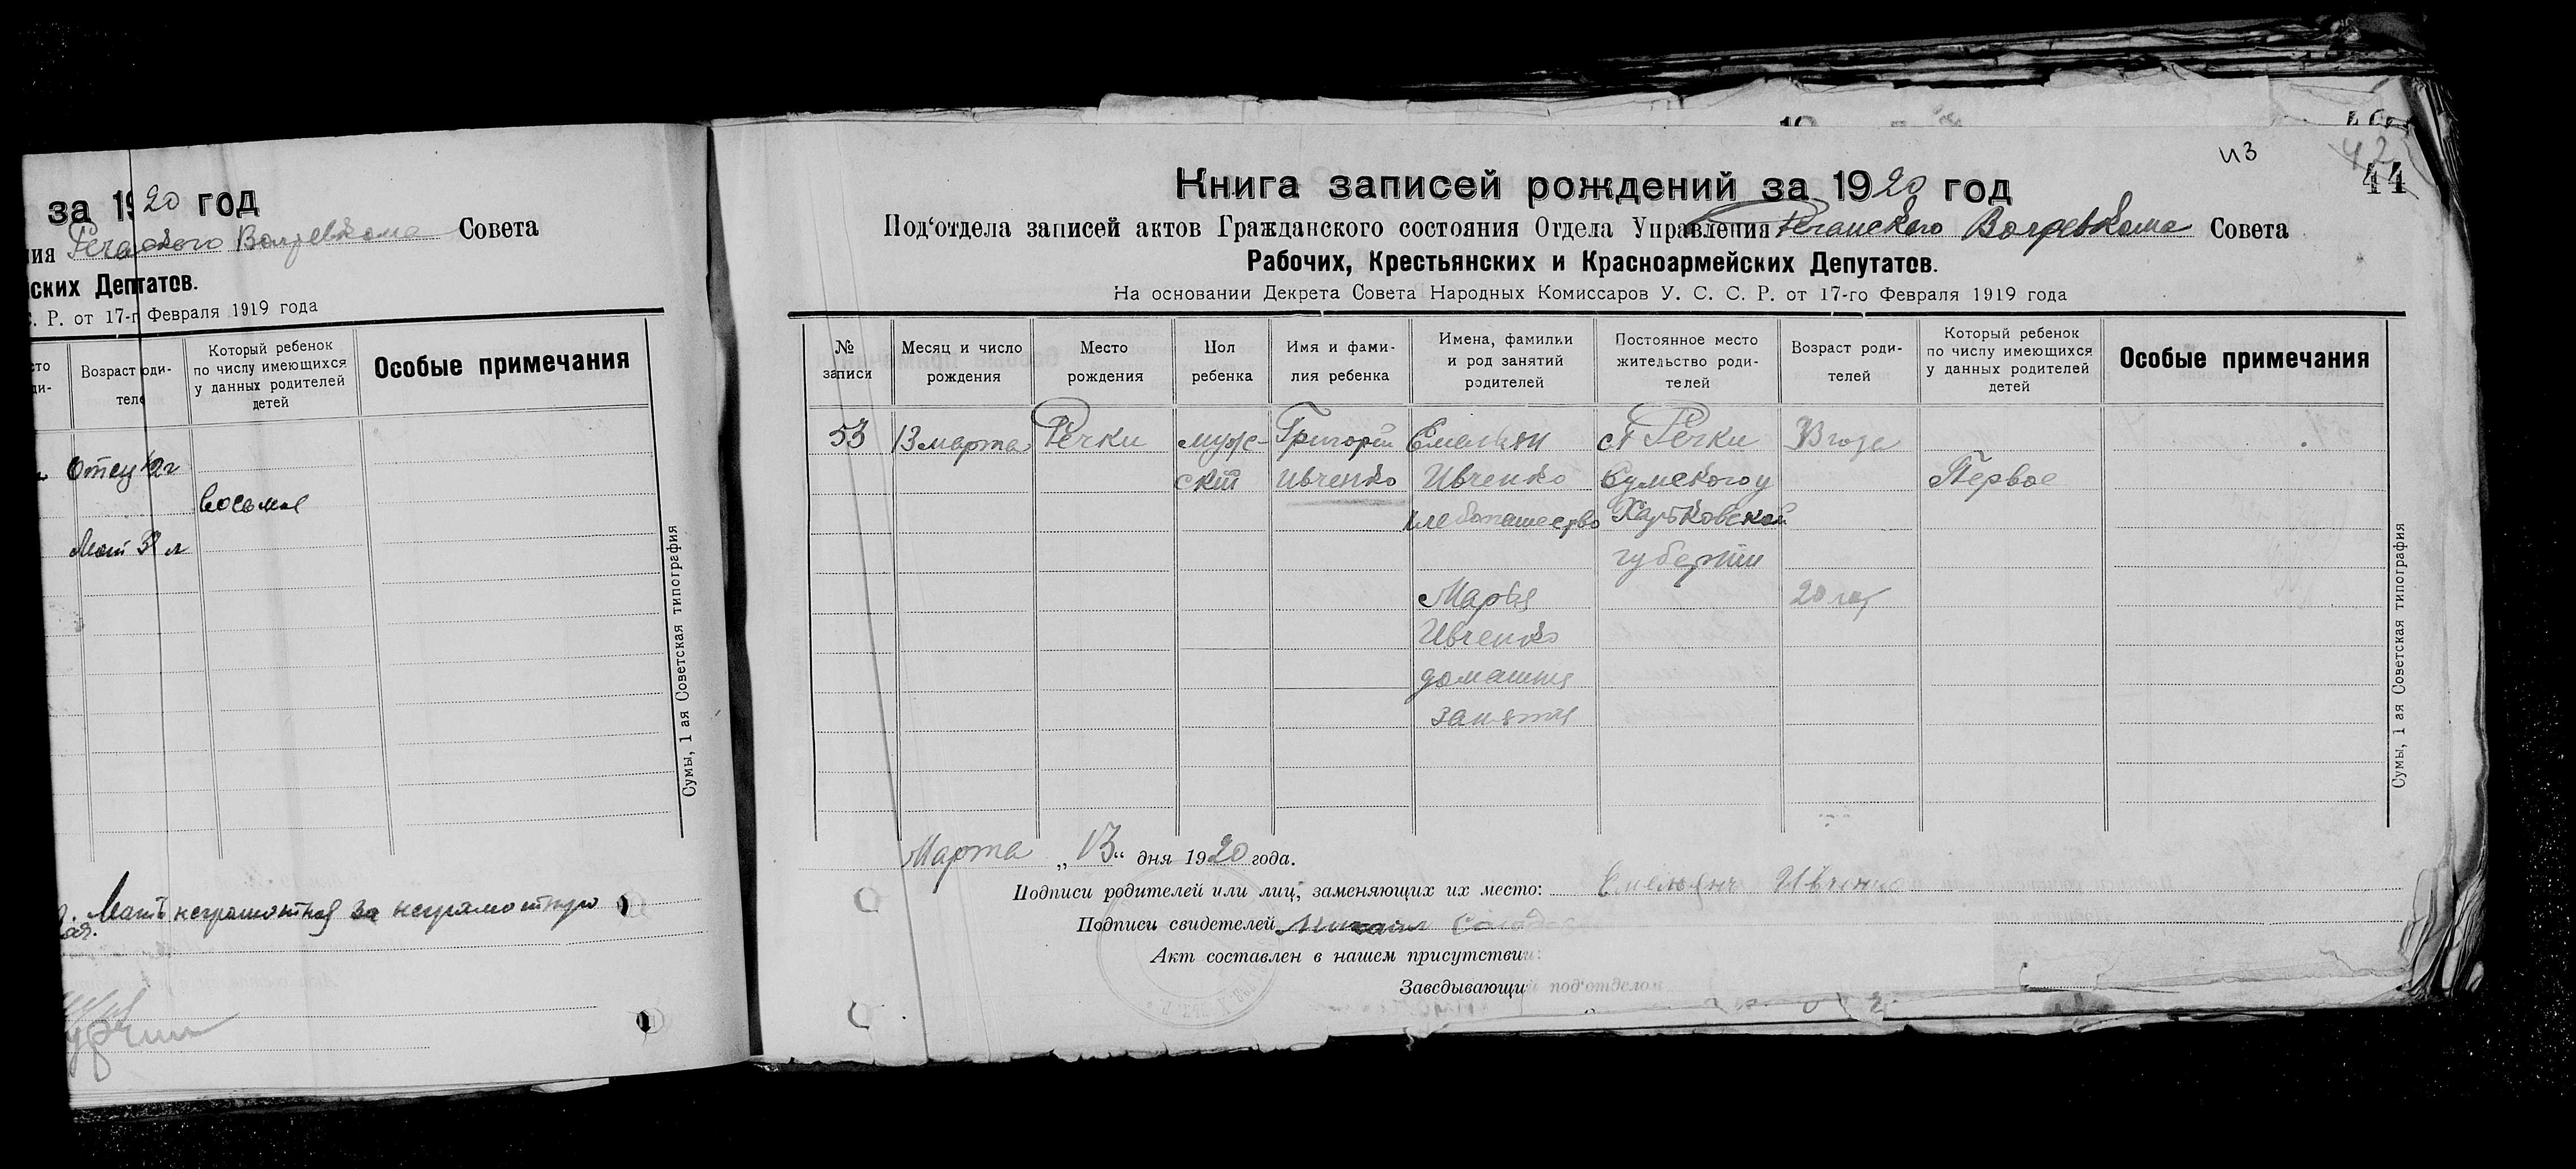 за 1920 год
ия Речанского Волревкома Совета
ских Депутатов.
С. Р. от 17-г Февраля 1919 года
Возраст роди-
теле
Который ребенок
по числу имеющихся
у данных родителей
детей
Особые примечания
Отец 42 г
восьмое
Мать л
Мать неграмотная за неграмотную
Сумы, 1 ая Советская типография
из
42
44
Книга записей рождений за 1920 год
Под‘отдела записей актов Гражданского состояния Отдела Управления Речанского Волревкома Совета
Рабочих, Крестьянских и Красноармейских Депутатов.
На основании Декрета Совета Народных Комиссаров У. С. С. Р. от 17-го Февраля 1919 года
№
записи
Месяц и число
рождения
Место
рождения
Пол
ребенка
Имя и фами-
лия ребенка
Имена, фамилии
и род занятий
родителей
Постоянное место
жительство роди-
телей
Возраст роди-
телей
Который ребенок
по числу имеющихся
у данных родителей
детей
Особые примечания
53 13 марта Речки муж- Григорій Емельян сл Речки года
скій Ивченко Ивченко Сумского у Первое
хлебопашество Харьковской
губерніи
Марья 20 лет
Ивченко
домашния
занятия
Марта „13“ дня 1920 года.
Подписи родителей или лиц, заменяющих их место: Емельянъ Ивченко
Подписи свидетелей Михаил
Акт составлен в нашем присутствии:
Заведывающий под‘отделом
Сумы, 1 ая Советская типография